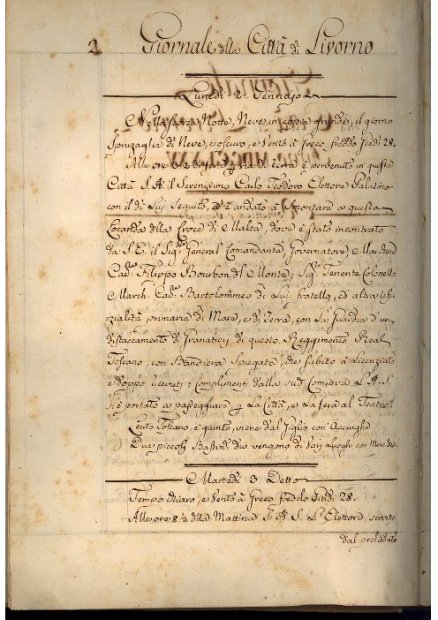 2 Giornale della Città di Livorno
Lunedi 2. Gennajo
Nella scorsa Notte, Neve, in coppia grande, il giorno
Spruzaglia di Neve, e oscuro, e Vento à Greco freddo Gradi 28.
Alle ore di terra è pervenuto in questa
Città S. A. il Serenissimo Carlo Teodoro Elettore Palatino
con il di Lui Seguito, ed è andato à Smontare a questa
Locanda della Croce di Malta, dove è stato incontrato
da S. E. il Sig.r General Comandante Governatore, Maior
Cav. Filippo Bourbon del Monte; Sig.r Tenente Colonello
March. Cav. Bartolommeo di Lui fratello, ed altra uffi
zialità primaria di Mare, e di Terra, con La Guardia d'un
distaccamento di Granatieri di questo Reggimento Real
Toscano, con Bandiera Spiegata, che subito à Licenziato
e doppo ricevuti i complimenti dalla sud. Comitiva L'A. S.
si è portato a passeggiare p La Città, e La sera al Teatro.
Leuto Toscano, è giunto, viene dal Giglio con Acciughe
Due piccoli Bastim. che vengono di varj Luoghi con Merc.
Martedi 3. Detto
Tempo chiaro, e Vento à Greco freddo Gradi 28.
Alle ore 8½ della Mattina S. A. S. L'Elettore, servito
dal prelodato